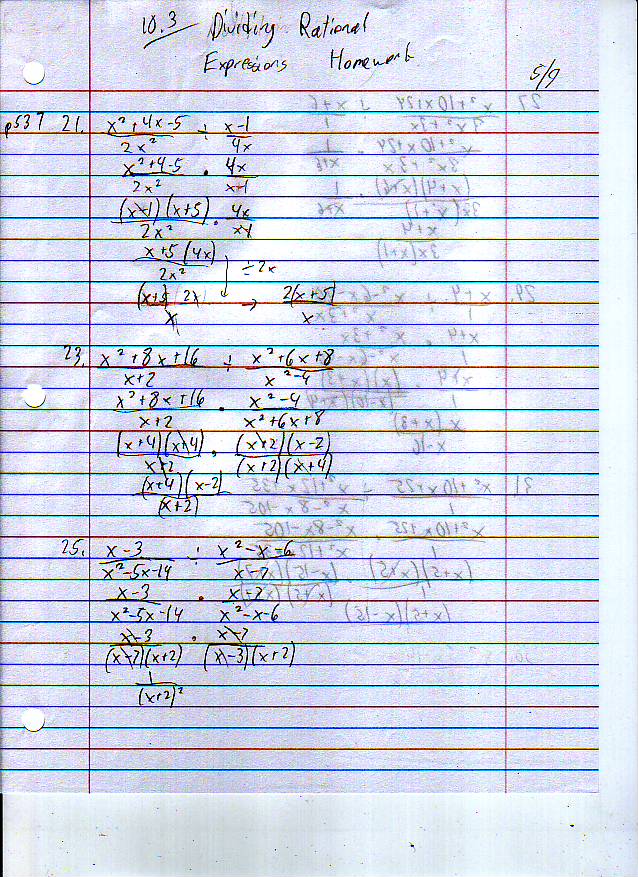 10.3 Dividing Rational
Expressions Homework
5/9
p537 21. x²+4x-5 / 2x² ÷ x-1 / 4x
x²+4-5 / 2x² · 4x / x-1
(x-1)(x+5) / 2x² · 4x / x-1
x+5(4x) / 2x² ÷2x
(x+5)(2x) / x → 2(x+5) / x
23. x²+8x+16 / x+2 ÷ x²+6x+8 / x²-4
x²+8x+16 / x+2 · x²-4 / x²+6x+8
(x+4)(x+4) / x+2 · (x+2)(x-2) / (x+2)(x+4)
(x+4)(x-2) / (x+2)
25. x-3 / x²-5x-14 ÷ x²-x-6 / x-7
x-3 / x²-5x-14 · x-7 / x²-x-6
x-3 / (x-7)(x+2) · x-7 / (x-3)(x+2)
1 / (x+2)²